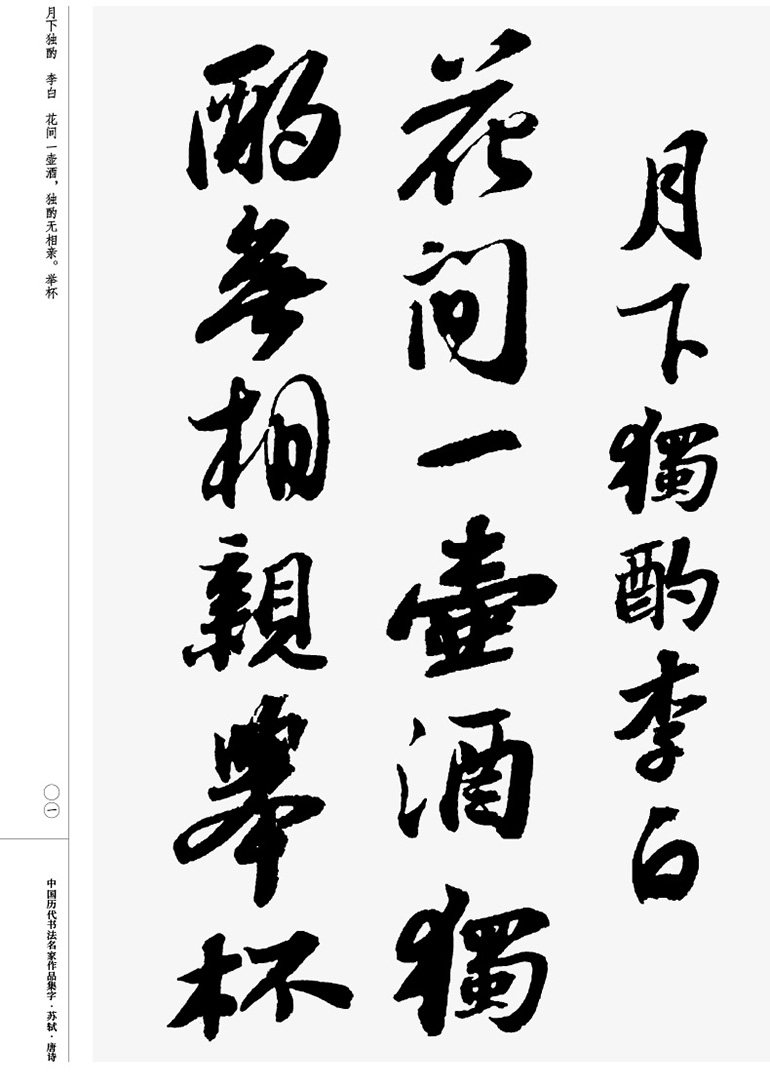 月下獨酌李白
花间一壺酒獨
酌無相親舉杯
月下独酌 李白 花间一壶酒，独酌无相亲。举杯
〇一
中国历代书法名家作品集字·苏轼·唐诗